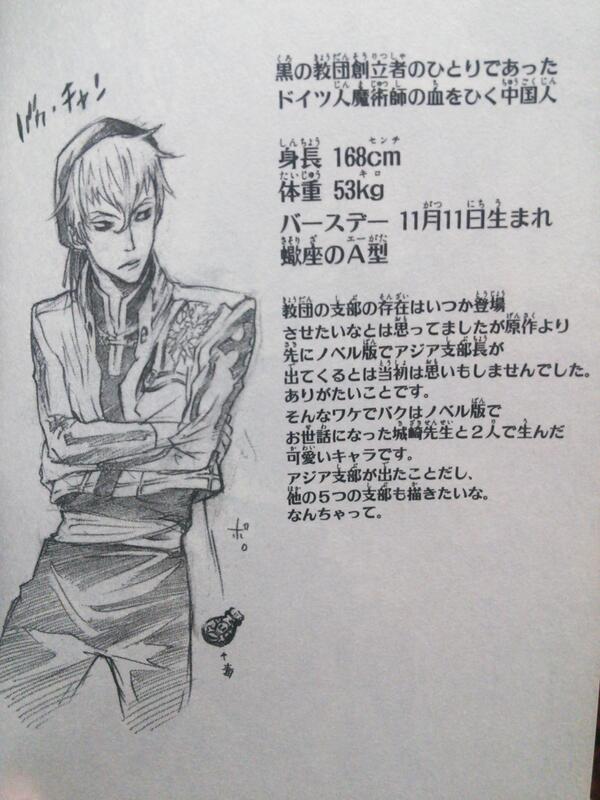 バク・チャン
黒の教団創立者のひとりであった
ドイツ人魔術師の血をひく中国人
身長 168cm
体重 53kg
バースデー 11月11日生まれ
蠍座のA型
教団の支部の存在はいつか登場
させたいなとは思ってましたが原作より
先にノベル版でアジア支部長が
出てくるとは当初は思いもしませんでした。
ありがたいことです。
そんなワケでバクはノベル版で
お世話になった城崎先生と2人で生んだ
可愛いキャラです。
アジア支部が出たことだし、
他の5つの支部も描きたいな。
なんちゃって。
ポロ